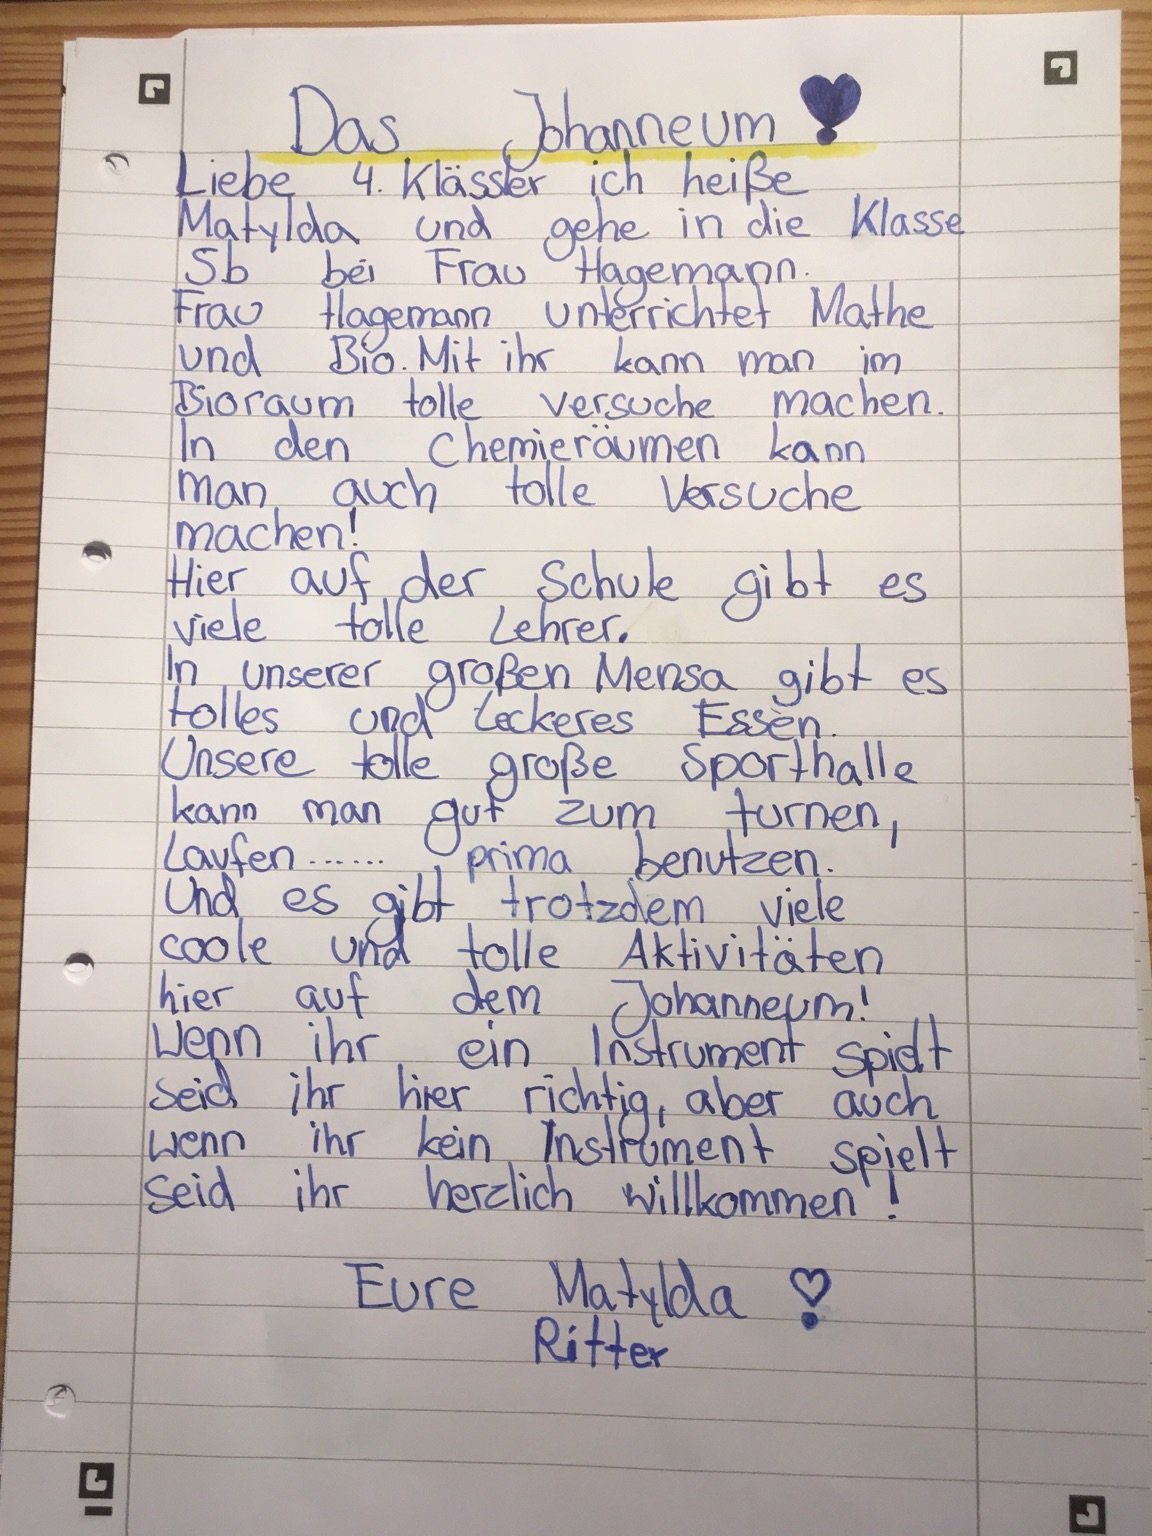 Das Johanneum
Liebe 4. Klässler ich heiße
Matylda und gehe in die Klasse
5b bei Frau Hagemann.
Frau Hagemann unterrichtet Mathe
und Bio. Mit ihr kann man im
Bioraum tolle versuche machen.
In den Chemieräumen kann
man auch tolle Versuche
machen!
Hier auf der Schule gibt es
viele tolle Lehrer.
In unserer großen Mensa gibt es
tolles und Leckeres Essen.
Unsere tolle große Sporthalle
kann man gut zum turnen,
Laufen...... prima benutzen.
Und es gibt trotzdem viele
coole und tolle Aktivitäten
hier auf dem Johanneum!
Wenn ihr ein Instrument spielt
seid ihr hier richtig, aber auch
wenn ihr kein Instrument spielt
seid ihr herzlich willkommen!
Eure Matylda
Ritter